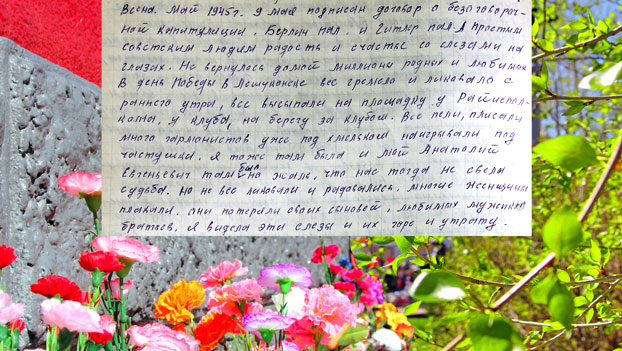 Весна. Май 1945г. 9 мая подписан договор о безоговороч-
ной капитуляции. Берлин пал. и Гитлер пал. А простым
советским людям радость и счастье со слезами на
глазах. Не вернулось домой миллионы родных и любимых
В день Победы в Лешуконске все гремело и ликовало с
раннего утра, все высыпали на площадку у Райиспол-
кома, у клуба, на берегу за клубом. Все пели, плясали
много гармонистов уже под хмельком наигрывали под
частушки. Я тоже там была и мой Анатолий
Евгеньевич там был но жаль, что нас тогда не свела
судьба. Но не все ликовали и радовались. многие женщины
плакали. они потеряли своих сыновей, любимых мужиков
братьев. Я видела эти слезы и их горе и утрату.